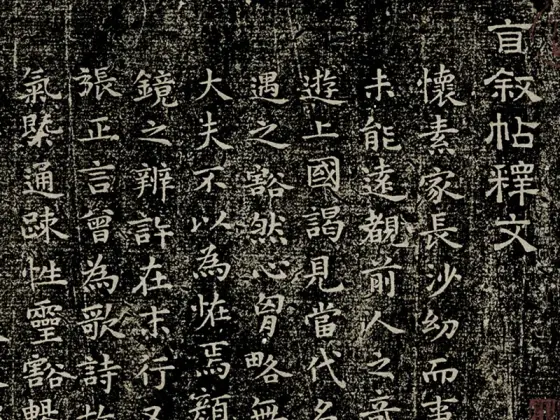 自叙帖釋文
懷素家長沙幼而事
未能遠覩前人之奇
遊上國謁見當代名
遇之豁然心胷略無
大夫不以為恠焉顔
鏡之辨許在末行又
張正言曾為歌詩故
氣槩通踈性靈豁暢